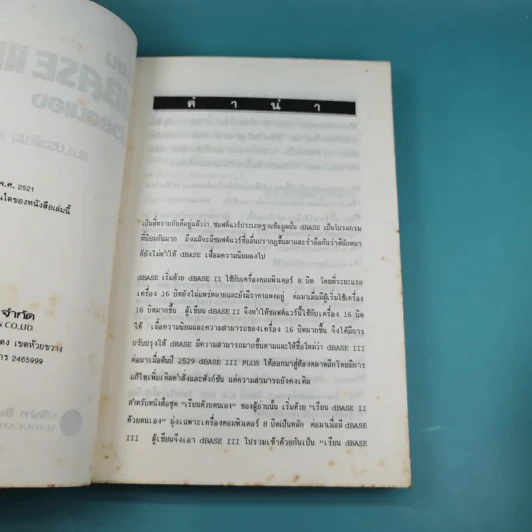 พ.ศ. 2521
ของหนังสือเล่มนี้
จำกัด
N CO.,LTD.
แดง เขตห้วยขวาง
การ 2465999
คำนำ
เป็นที่ทราบกันดีอยู่แล้วว่า ซอฟต์แวร์ประเภทฐานข้อมูลนั้น dBASE เป็นโปรแกรม
ที่นิยมกันมาก ถึงแม้จะมีซอฟต์แวร์ชื่ออื่นปรากฏขึ้นมาและร่ำลือกันว่าดีนักหนา
ก็ยังไม่ทำให้ dBASE เสื่อมความนิยมลงไป
dBASE เริ่มด้วย dBASE II ใช้กับเครื่องคอมพิวเตอร์ 8 บิต โดยที่ระยะแรก
เครื่อง 16 บิตยังไม่แพร่หลายและยังมีราคาแพงอยู่ ต่อมาเมื่อมีผู้เริ่มใช้เครื่อง
16 บิตมากขึ้น ผู้เขียน dBASE II จึงทำให้ซอฟต์แวร์นี้ใช้กับเครื่อง 16 บิต
ได้ เมื่อความนิยมและความสามารถของเครื่อง 16 บิตมากขึ้น จึงได้มีการ
ปรับปรุงให้ dBASE มีความสามารถมากขึ้นตามและให้ชื่อใหม่ว่า dBASE III
ต่อมาเมื่อต้นปี 2529 dBASE III PLUS ได้ออกมาสู่ท้องตลาดอีกโดยมีการ
แก้ไขเพิ่มเติมคำสั่งและฟังก์ชัน แต่ความสามารถยังคงเดิม
สำหรับหนังสือชุด "เรียนด้วยตนเอง" ของผู้อ่านนั้น เริ่มด้วย "เรียน dBASE II
ด้วยตนเอง" มุ่งเฉพาะเครื่องคอมพิวเตอร์ 8 บิตเป็นหลัก ต่อมาเมื่อมี dBASE
III ผู้เขียนจึงเอา dBASE III ไปรวมเข้าด้วยกันเป็น "เรียน dBASE